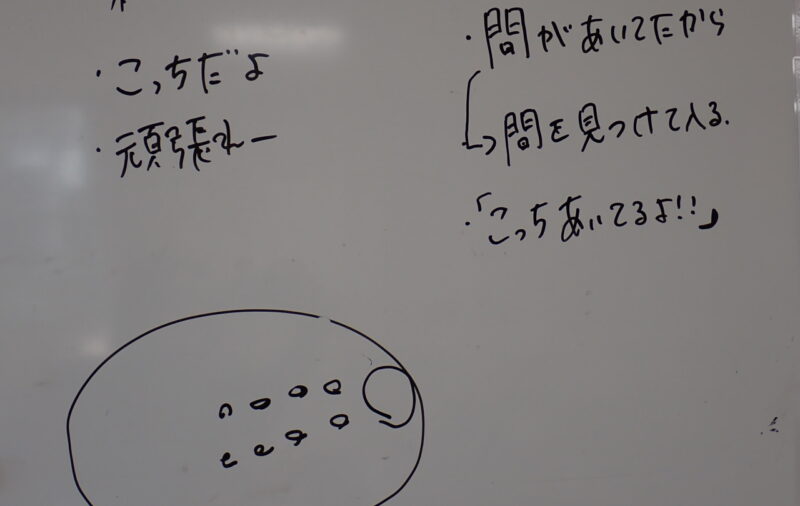 ・こっちだよ
・頑張れー
・間があいてたから
→間を見つけて入る.
・「こっちあいてるよ!!」